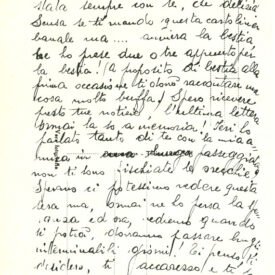 stata sempre con te, che delizia
Scusa se ti mando questa cartolina
banale ma.... arriverà la bestia
ne ho prese due o tre appunto per
la bestia! (a proposito di bestia alla
prima occasione ti dovrò raccontare una
cosa molto buffa) Spero ricevere
presto tue notizie, l'ultima lettera
ormai la so a memoria! Ieri ho
parlato tanto di te con la mia a
mica in passeggiata
non ti sono fischiate le orecchie?
Speravo ci potessimo vedere questa
sera ma, ormai ne ho persa la
ed ora, vedremo quando
si potrà, dovranno passare lunghi
interminabili giorni! Ti penso, ti
desidero, ti accarezzo e ti